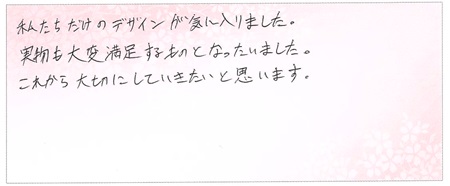 私たちだけのデザインが気に入りました。
実物も大変満足するものとなったいました。
これから大切にしていきたいと思います。